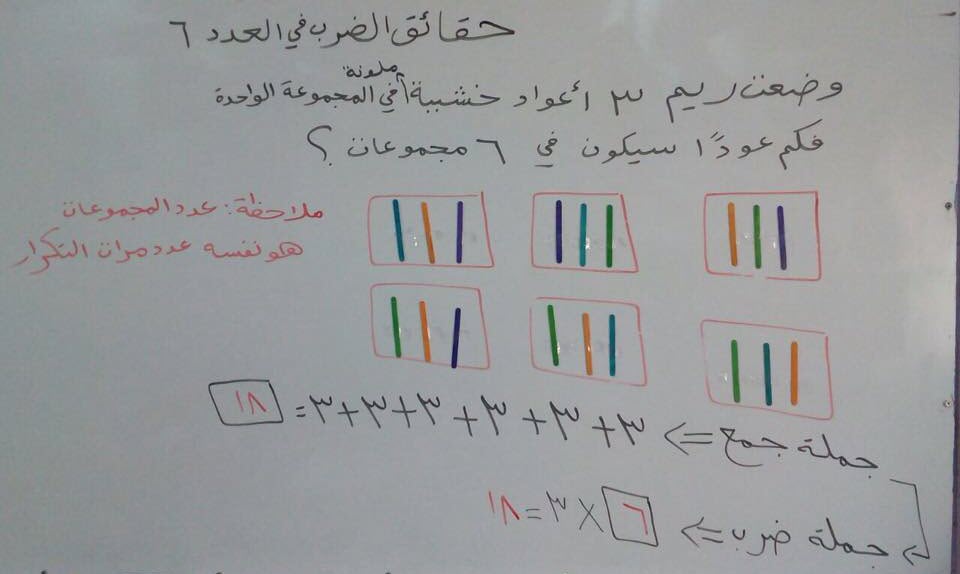 حقائق الضرب في العدد ٦
وضعت ريم ٣ أعواد خشبية ملونة في المجموعة الواحدة
فكم عودًا سيكون في ٦ مجموعات ؟
ملاحظة: عدد المجموعات
هو نفسه عدد مرات التكرار
جملة جمع <= ٣+٣+٣+٣+٣+٣= ١٨
جملة ضرب <= ٦ × ٣ = ١٨